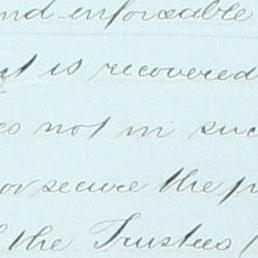 nd enforceable
is recovered
not in suc
or secure the p
the Trustees (